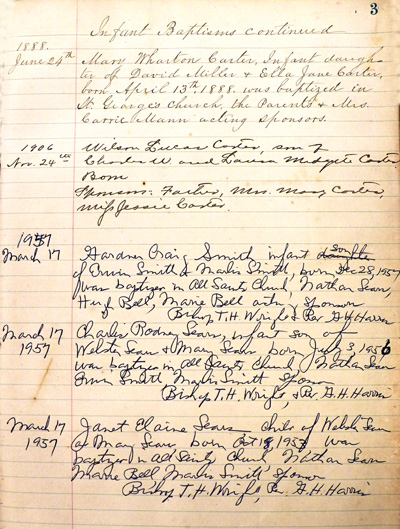 3
Infant Baptisms continued
1888.
June 24th Mary Wharton Carter, Infant daugh-
ter of David Miller & Ella Jane Carter,
born April 13th 1888. was baptized in
St. George's Church, the Parents & Mrs.
Carrie Mann acting sponsors.
1906 Wilson Lucas Carter, son of
Nov. 24th Charles W and Laura Midgett Carter
Born
Sponsors: Father, Mrs. Mary Carter,
Miss Jessie Carter.
1957
March 17 Gardner Craig Smith infant son
of Erwin Smith & Marlis Smith, born Dec 28, 1957
was baptized in All Saints Church Nathan Sears,
Bell, Marie Bell Sponsor
Bishop T.H. Wright & Rev G.H. Harris
March 17 Charles Rodney Sears, infant son of
1957 Webster Sears & Mary Sears born July 3, 1956
was baptized in All Saints Church Nathan Sears
Erwin Smith Marlis Smith Sponsor
Bishop T.H. Wright, & Rev. G.H. Harris
March 17 Janet Elaine Sears child of Webster Sears
1957 & Mary Sears born Oct 18, 1953 was
baptized in All Saints Church Nathan Sears
Marie Bell Marlis Smith Sponsor
Bishop T.H. Wright, Rev G.H. Harris